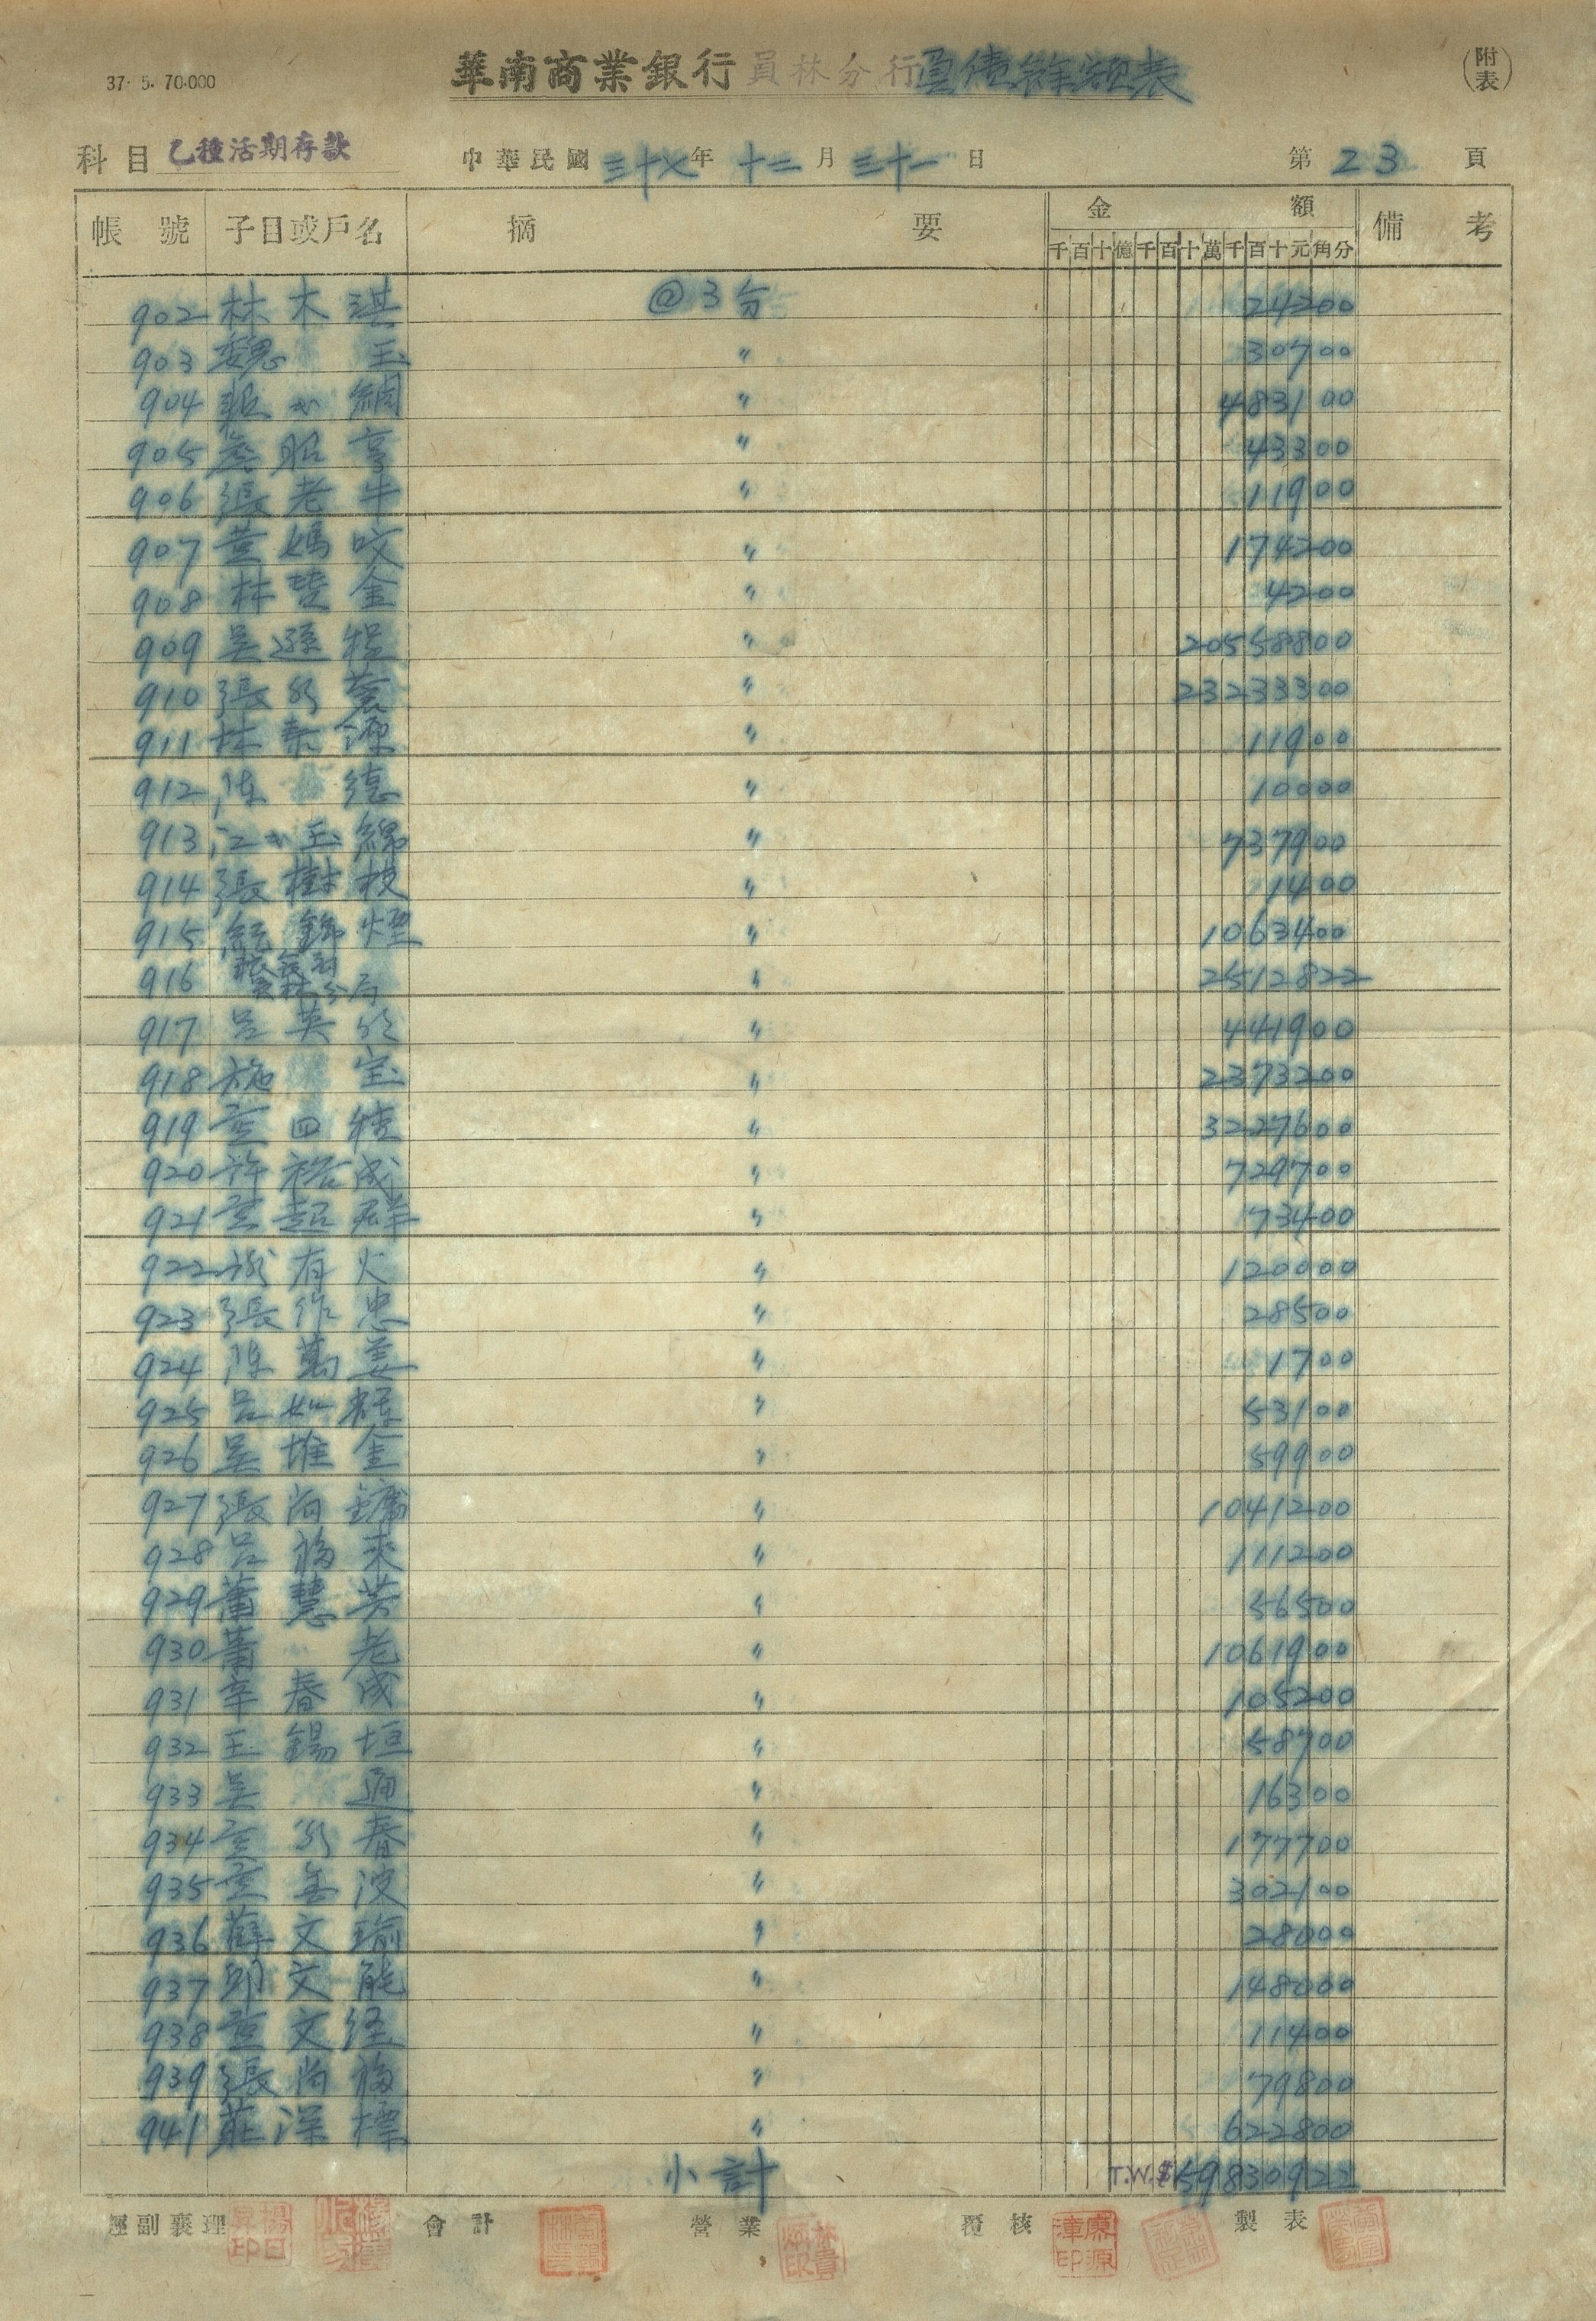 37. 5. 70.000
華南商業銀行員林分行 餘額表
(附表)
科目 乙種活期存款 中華民國三十七年十二月三十一日 第23頁
帳號 子目或戶名 摘要 金額 備考
千百十億千百十萬千百十元角分
902 林木琪 @3分 24200
903 魏玉 〃 30700
904 賴 綢 〃 483100
905 詹昭亨 〃 43300
906 張老牛 〃 11900
907 黃媽咬 〃 174200
908 林 金 〃 4200
909 吳遜 〃 20558800
910 張 〃 23233300
911 林泰源 〃 11900
912 陳德 〃 10000
913 江 玉綿 〃 737900
914 張樹枝 〃 1400
915 錦煙 〃 1063400
916 員林分局 〃 2512822
917 呂英 〃 441900
918 施宝 〃 2373200
919 黃四 〃 3227600
920 許裕成 〃 729700
921 黃超群 〃 73400
922 有火 〃 120000
923 張作忠 〃 28500
924 陳萬姜 〃 1700
925 呂如 〃 53100
926 吳堆金 〃 59900
927 張尚鏞 〃 1041200
928 呂福來 〃 111200
929 蕭慧芳 〃 56500
930 蕭老 〃 1061900
931 辛春成 〃 105200
932 王錫垣 〃 58700
933 吳通 〃 16300
934 黃 春 〃 177700
935 黃 波 〃 302100
936 薛文瑜 〃 28000
937 邱文能 〃 148000
938 黃文経 〃 11400
939 張尚福 〃 79800
941 莊深標 〃 622800
小計 T.W.$59830922
經副襄理 會計 營業 覆核 製表